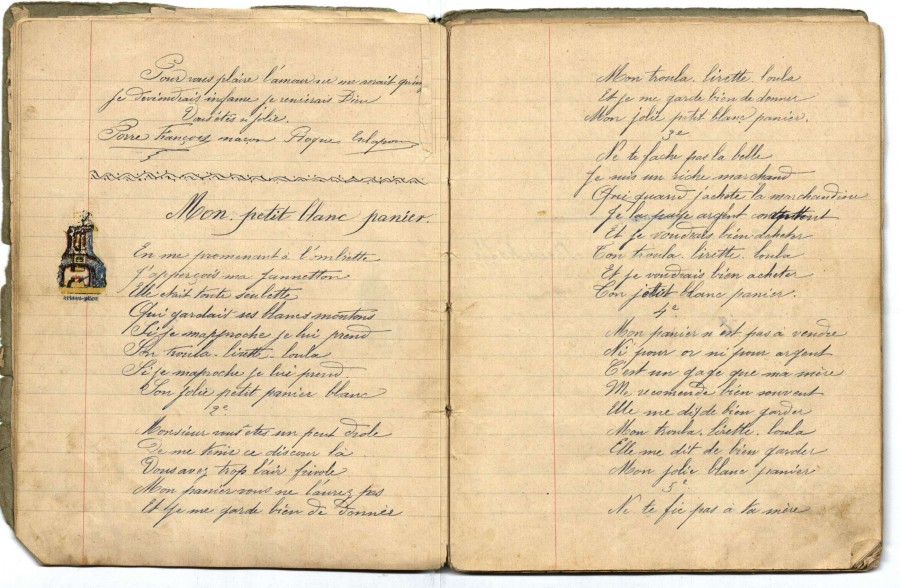 Pour vous plaire l'amour ne me serait qu'un
Je deviendrais infame je renirais Dieu
Vous êtes si jolie.
Porre François maçon
Mon petit blanc panier.
En me promenant à l'ombrette
J'apperçois ma Jannetton
Elle était toute seulette
Qui gardait ses blancs moutons
Si je mapproche je lui prend
Son troula. lirette. loula
Si je maproche je lui prend.
Son jolie petit panier blanc
2e
Monsieur vous êtes un peut drole
De me tenir ce discour la
Vous avez trop l'air frivole
Mon panier vous ne l'aurez pas
Et je me garde bien de donner
Mon troula. lirette. loula
Et je me garde bien de donner
Mon jolie petit blanc panier.
3e
Ne te fache pas la belle
Je suis un riche marchand
Qui quand j'achete la marchandise
Je la paye argent contant
Et je voudrais bien acheter
Ton troula. lirette. loula
Et je voudrais bien acheter
Ton petit blanc panier.
4e
Mon panier n'est pas à vendre
Ni pour or ni pour argent
C'est un gage que ma mère
Me recomende bien souvent
Elle me dit de bien garder
Mon troula. lirette. loula
Elle me dit de bien garder
Mon jolie blanc panier
5e
Ne te fie pas à ta mère